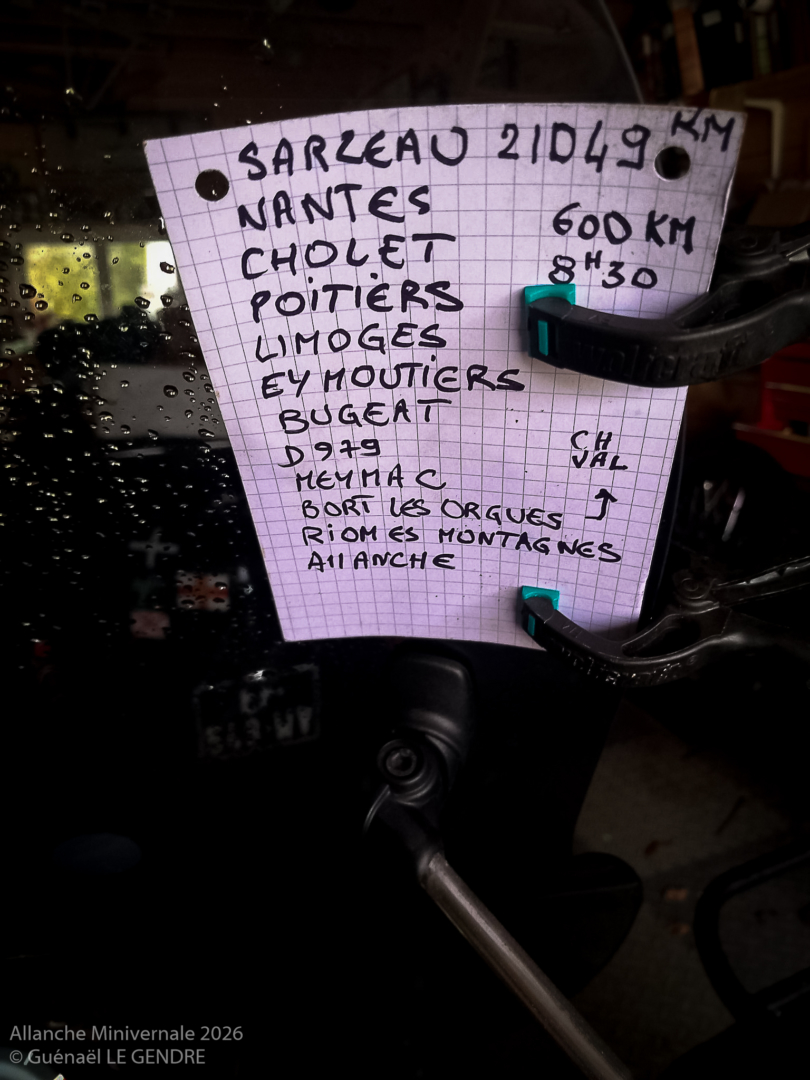 SARZEAU 21049 KM
NANTES
600 KM
CHOLET
8H30
POITIERS
LIMOGES
EYMOUTIERS
BUGEAT
D979
CH
VAL
MEYMAC
BORT LES ORGUES
RIOM ES MONTAGNES
AllANCHE
549 WY
Allanche Minivernale 2026
© Guénaël LE GENDRE